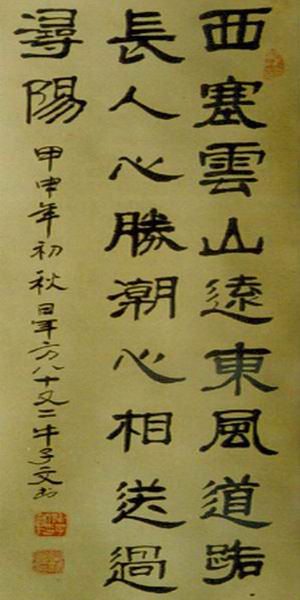 西塞雲山遠東風道路
長人心勝潮心相送過
潯陽
甲申年初秋日年方八十又二牛子文书